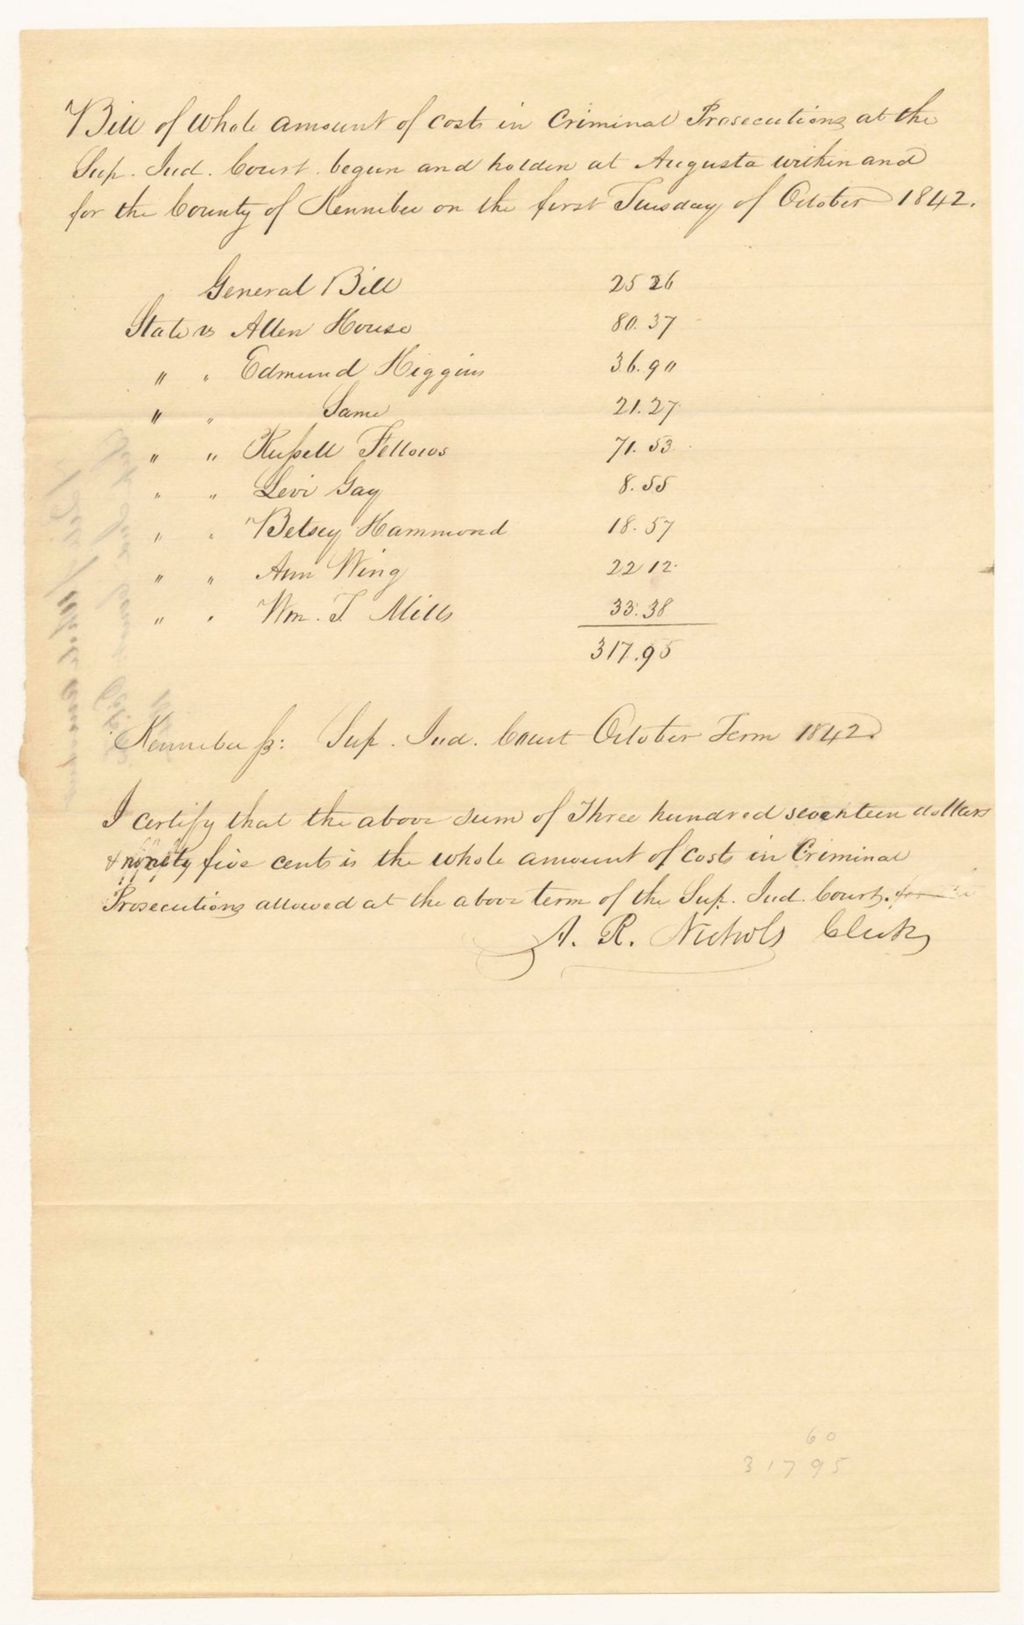 Bill of whole amount of costs in Criminal Prosecutions at the
Sup. Jud. Court begun and holden at Augusta within and
for the County of Kennebec on the first Tuesday of October 1842.
General Bill 25 26
State vs Allen House 80.37
" " Edmund Higgins 36.90
" " Same 21.27
" " Russell Fellows 71.53
" " Levi Gay 8.55
" " Betsey Hammond 18.57
" " Ann Wing 22 12
" " Wm. T Mills 33.38
317.95
Kennebec ss: Sup. Jud. Court October Term 1842
I certify that the above sum of Three hundred seventeen dollars
& ninety five cents is the whole amount of costs in Criminal
Prosecutions allowed at the above term of the Sup. Jud. Court.
A. R. Nichols Clerk
60
317 95